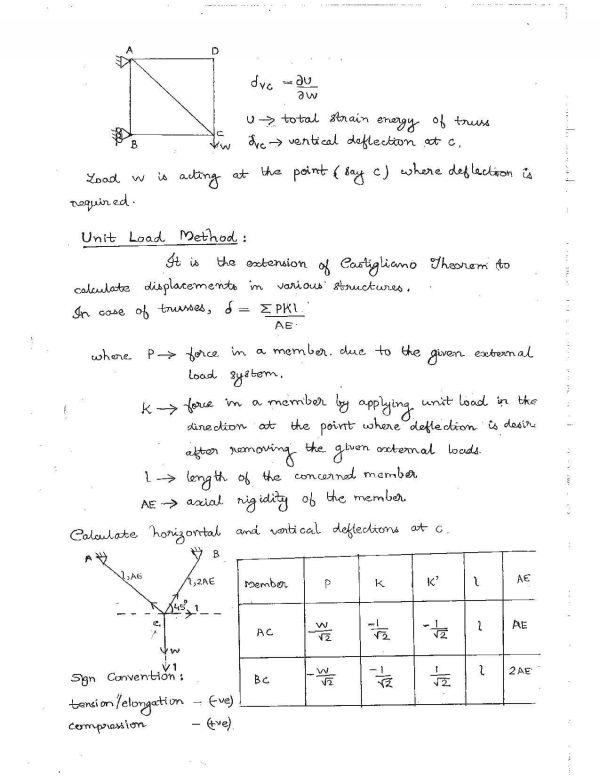 A D
B C
W
δvc = ∂U/∂W
U → total strain energy of truss
δvc → vertical deflection at c.
Load W is acting at the point (say c) where deflection is
required.
Unit Load Method:
It is the extension of Castigliano Theorem to
calculate displacements in various structures.
In case of trusses, δ = ΣPKl/AE
where P → force in a member due to the given external
load system.
K → force in a member by applying unit load in the
direction at the point where deflection is desir
after removing the given external loads.
l → length of the concerned member
AE → axial rigidity of the member
Calculate horizontal and vertical deflections at c.
A B
l, AE l, 2AE
45° 1
C
W
1
Member P K K' l AE
AC -W/√2 -1/√2 -1/√2 l AE
BC -W/√2 -1/√2 1/√2 l 2AE
Sign Convention:
tension/elongation - (-ve)
compression - (+ve)